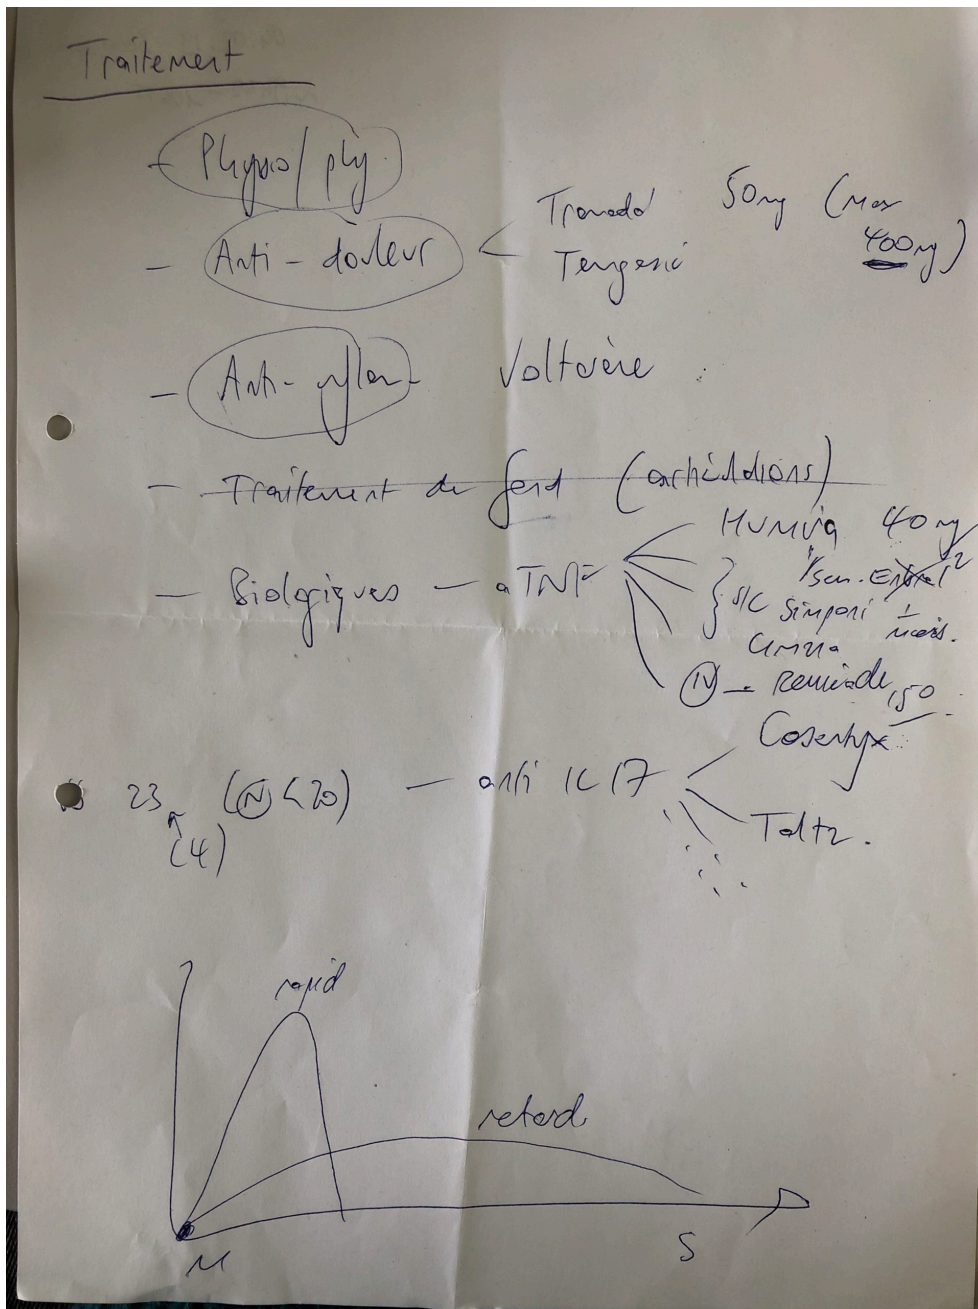 Traitement
- Physio/phy.
- Anti-douleur < Tramadol 50mg (Max 400mg)
Temgesic
- Anti-inflam- Voltarène
- Traitement de fond (antécédions)
- Biologiques - aTNF
Humira 40 mg
1/sem. Enbrel 2
S/C Simponi 1 mois.
Cimzia
IV - Remicade
Cosentyx 150
23 (N<20) - anti IL17
↑
(4)
Taltz.
rapid
retard
M
S